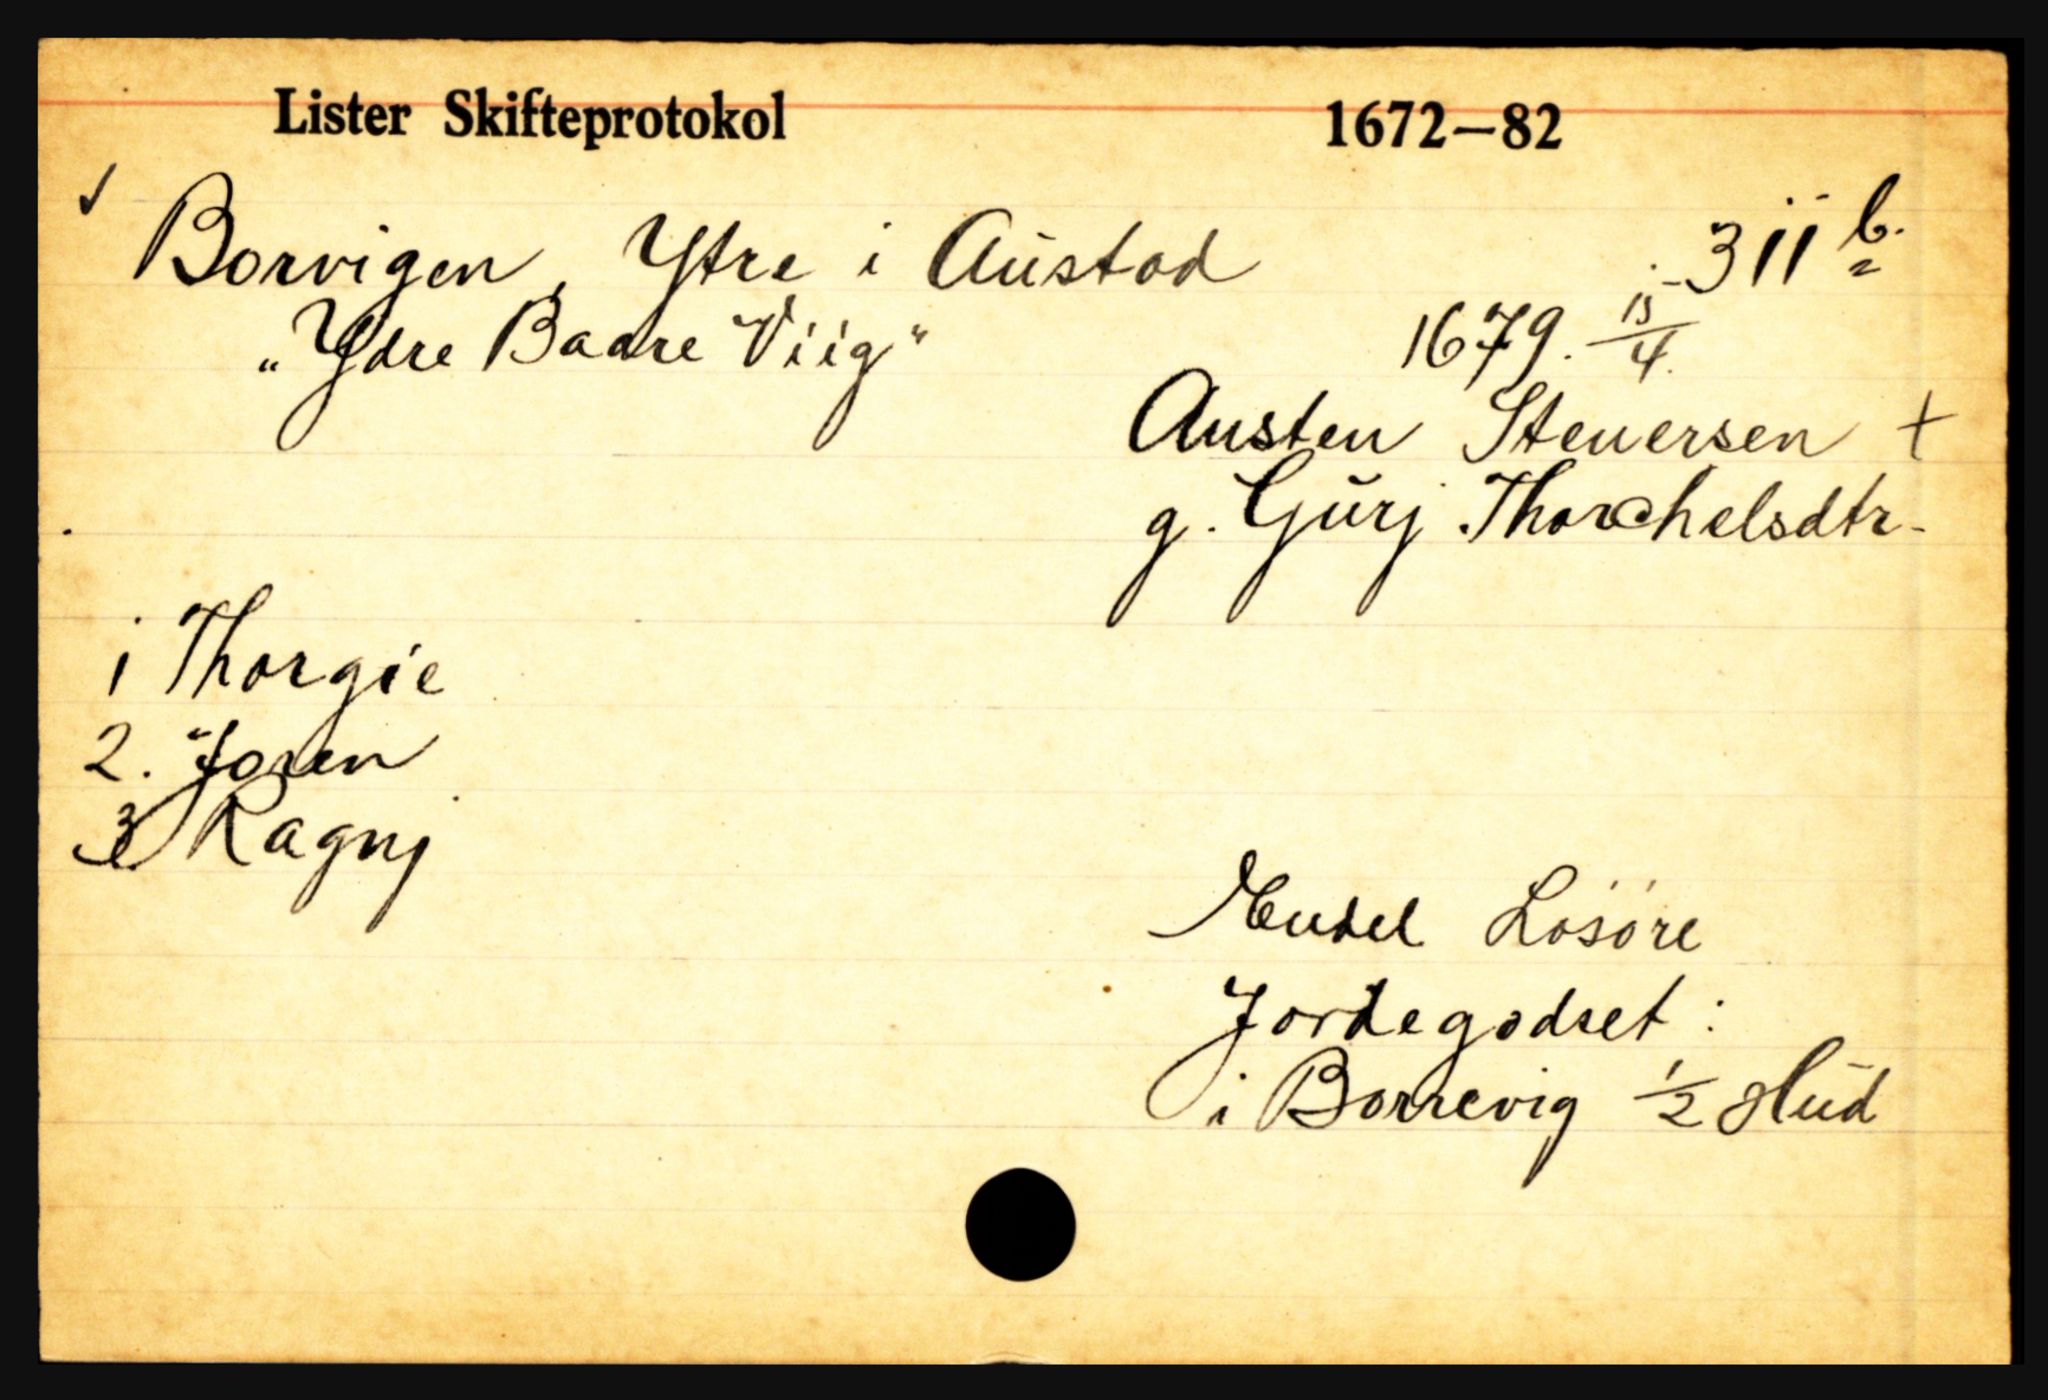 Lister Skifteprotokol 1672—82
Borvigen, Ytre i Austad 311 b.
"Ydre Baare Viig" 1679. 15/4.
Austen Steuersen +
g. Gurj Thorchelsdtr.
1 Thorgie
2. Joren
3 Ragnj
Endel Losöre
Jordegodset :
i Borrevig 1/2 Hud